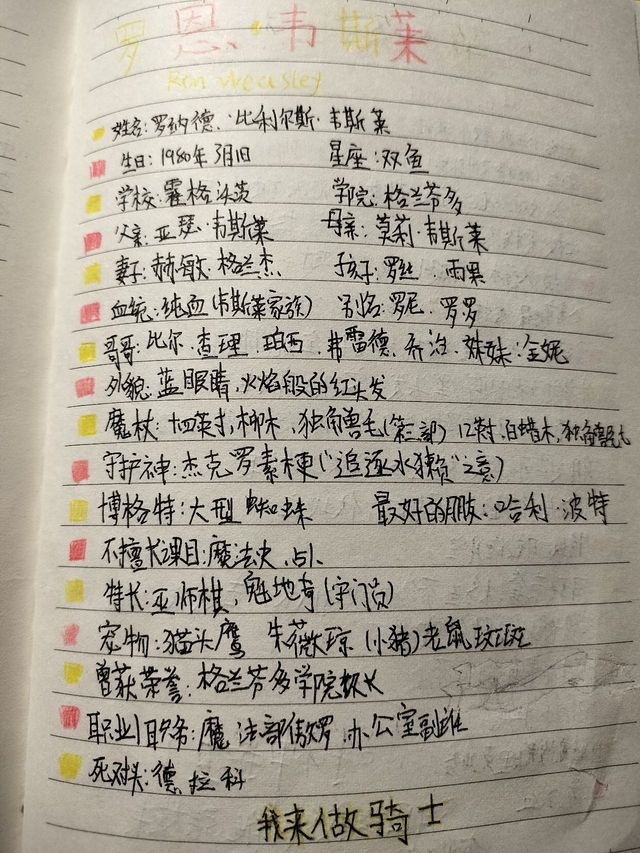 罗恩·韦斯莱
Ron Weasley
姓名:罗纳德·比利尔斯·韦斯莱
生日:1980年3月1日 星座:双鱼
学校:霍格沃茨 学院:格兰芬多
父亲:亚瑟·韦斯莱 母亲:莫莉·韦斯莱
妻子:赫敏·格兰杰 孩子:罗丝、雨果
血统:纯血(韦斯莱家族) 别名:罗尼、罗罗
哥哥:比尔、查理、珀西、弗雷德、乔治、妹妹:金妮
外貌:蓝眼睛,火焰般的红头发
魔杖:十四英寸,柳木,独角兽毛(第三部) 12英寸,白蜡木,独角兽毛
守护神:杰克罗素梗(“追逐水獭”之意)
博格特:大型蜘蛛 最好的朋友:哈利·波特
不擅长课目:魔法史、占卜
特长:巫师棋,魁地奇(守门员)
宠物:猫头鹰 朱薇琼(小猪)老鼠斑斑
曾获荣誉:格兰芬多学院级长
职业/职务:魔法部傲罗办公室副主
死对头:德拉科
我来做骑士